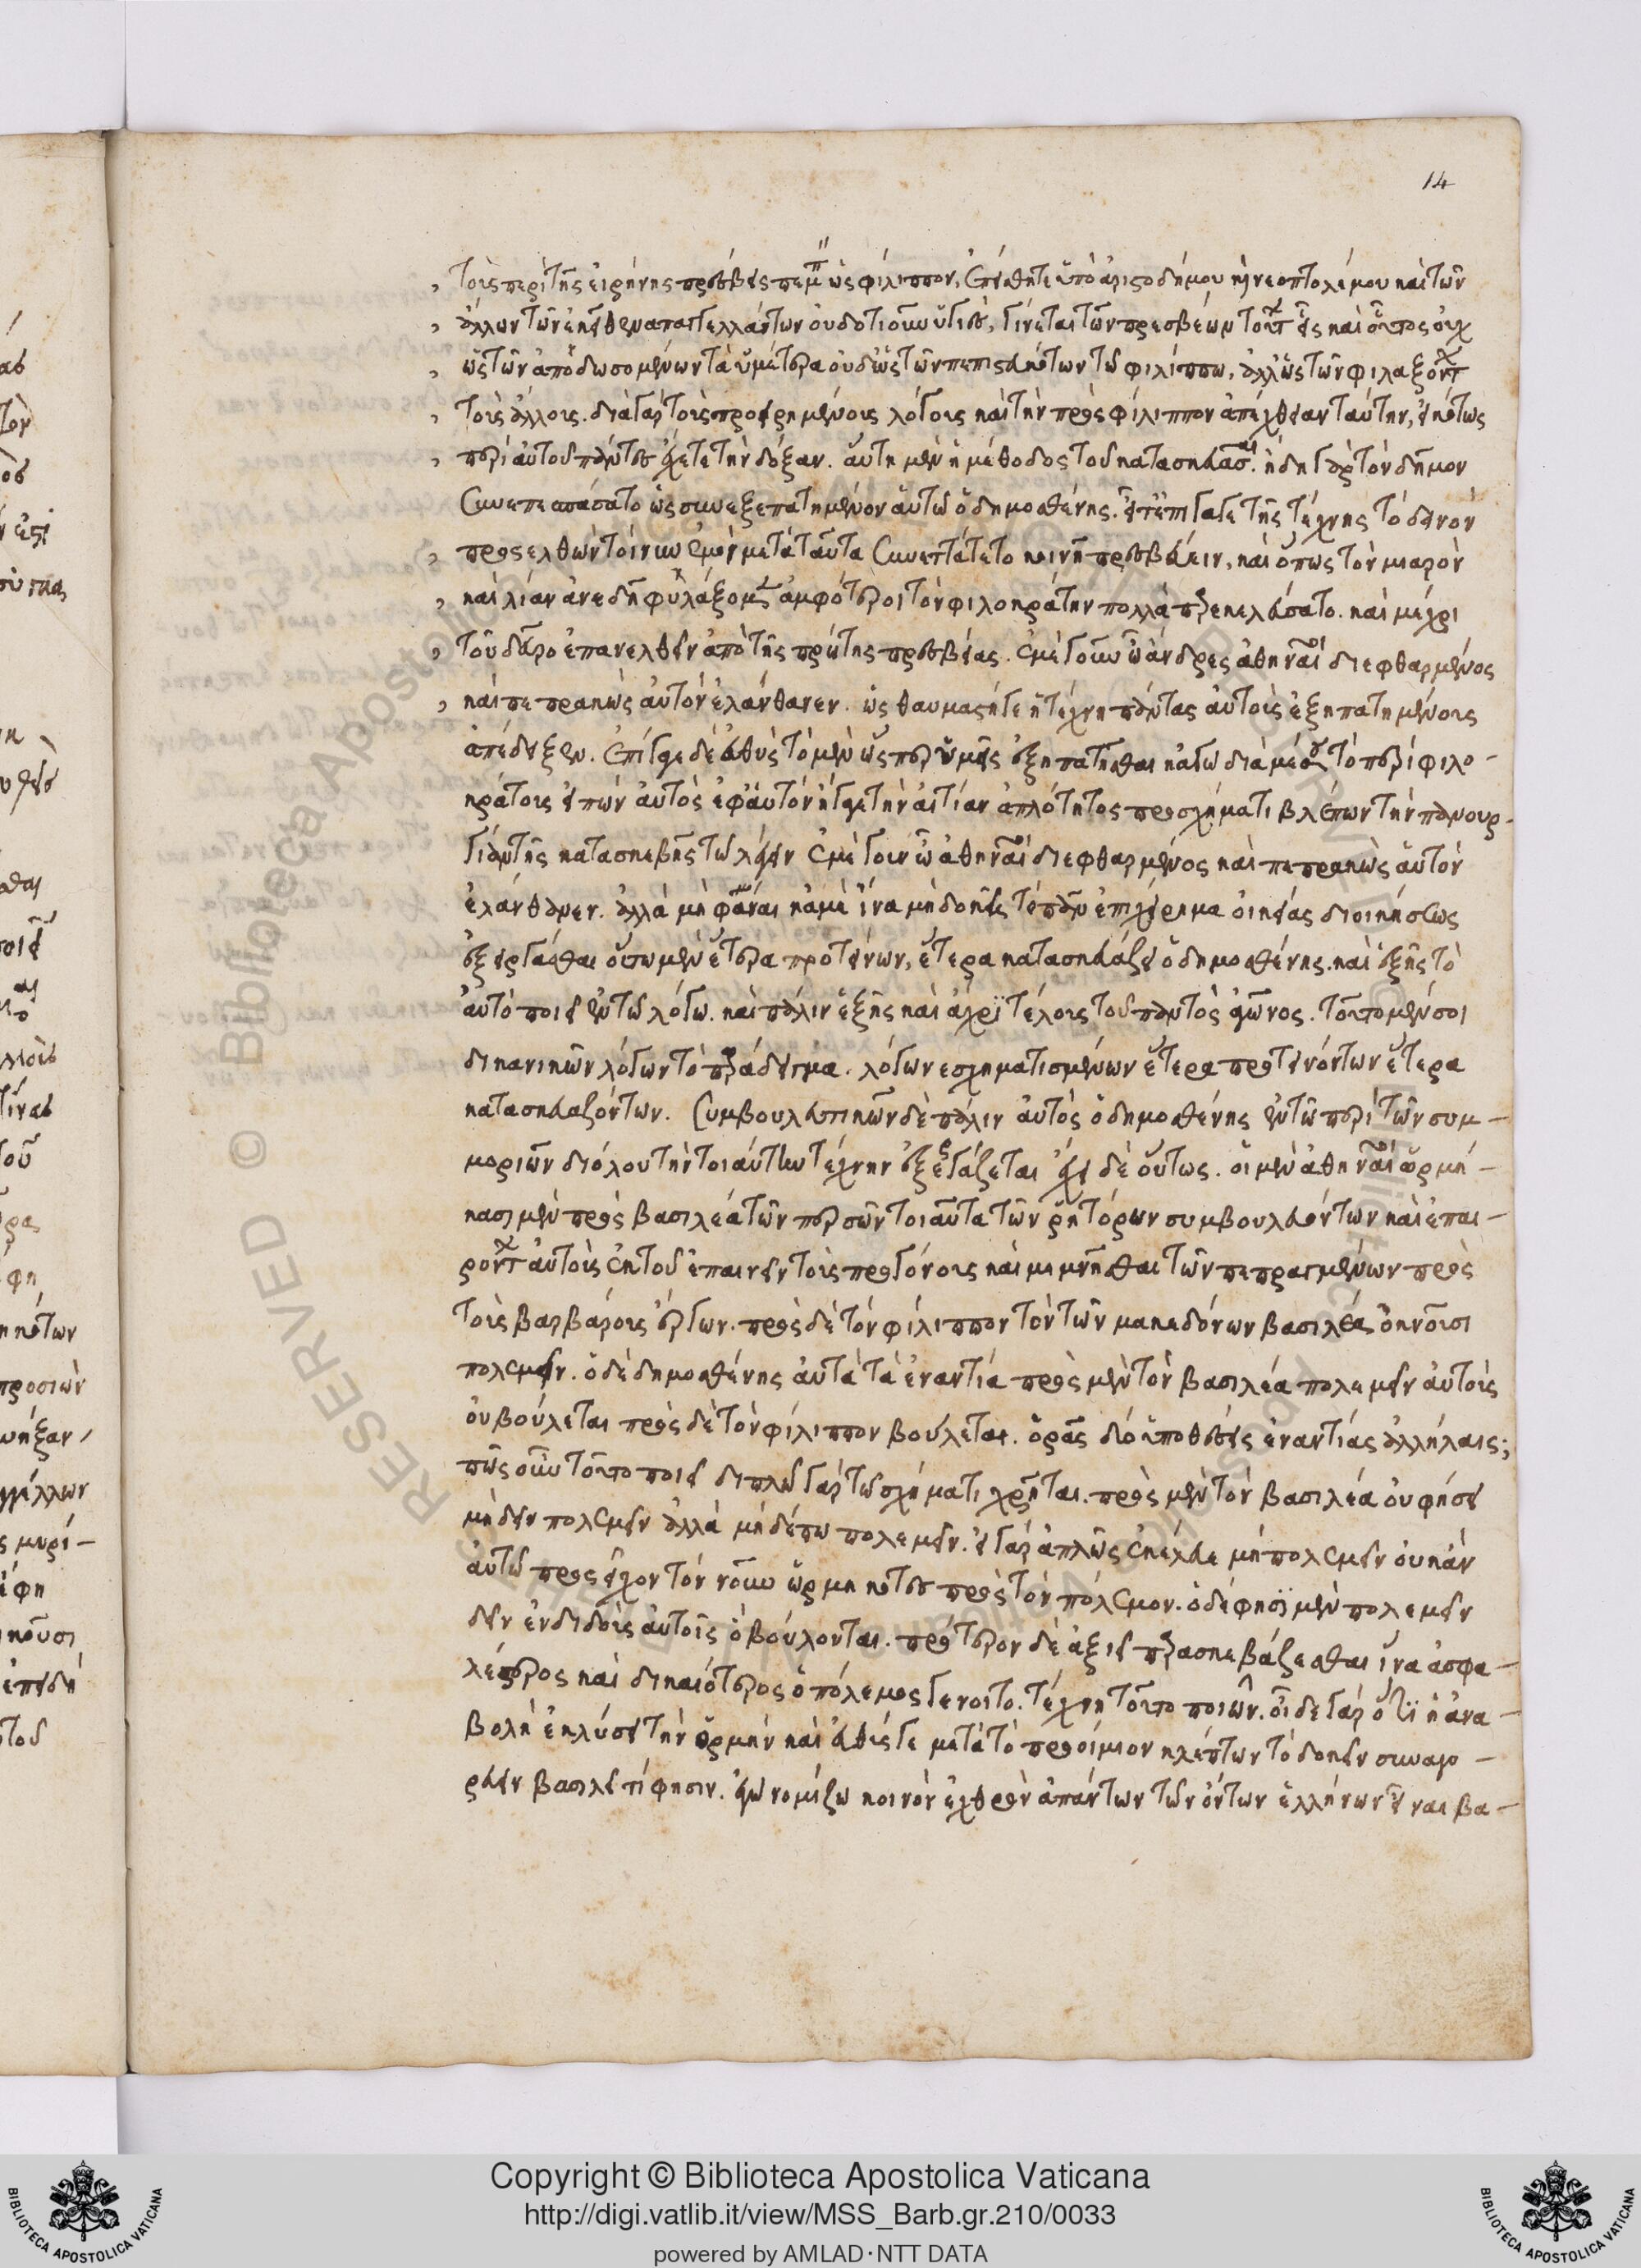 14
τοὺς περὶ τῆς εἰρήνης πρέσβεις πέμπειν ὡς φίλιππον, ἐπείσθητε ὑπὸ ἀριστοδήμου καὶ νεοπτολέμου καὶ τῶν
ἄλλων τῶν ἐκεῖθεν ἀπαγγελλόντων οὐδοτιοῦν ὑγιὲς, γίνεται τῶν πρέσβεων τούτων εἷς καὶ οὗτος οὐχ
ὡς τῶν ἀποδωσομένων τὰ ὑμέτερα οὐδ' ὡς τῶν πεπιστευκότων τῶ φιλίππω, ἀλλ' ὡς τῶν φυλαξόντων
τοὺς ἄλλους. διὰ γὰρ τοὺς προειρημένους λόγους καὶ τὴν πρὸς φίλιππον ἀπέχθειαν ταύτην, εἰκότως
περὶ αὐτοῦ πάντες εἴχετε τὴν δόξαν. αὕτη μὲν ἡ μέθοδος τοῦ κατασκευάσαι. ἤδη γὰρ τὸν δῆμον
συνεπεσπάσατο ὡς συνεξεπατημένον αὐτῶ ὁ δημοσθένης. εἶτ' ἐπιγαγε τῆς τέχνης τὸ δεινὸν
προσελθὼν τοίνυν ἐμοὶ μετὰ ταῦτα συνετάττετο κοινῆ πρεσβεύειν, καὶ ὅπως τὸν μιαρὸν
καὶ λίαν ἀναιδῆ φυλάξομεν ἀμφότεροι τὸν φιλοκράτην πολλὰ παρεκελεύσατο. καὶ μέχρι
τοῦ δεῦρο ἐπανελθεῖν ἀπὸ τῆς πρώτης πρεσβείας. ἐμὲ γοῦν ὦ ἄνδρες ἀθηναῖοι διεφθαρμένος
καὶ πεπρακὼς αὐτὸν ἐλάνθανεν. ὡς θαυμαστή γε ἡ τέχνη πάντας αὐτοὺς ἐξηπατημένους
ἀπέδειξεν. ἐπῆγε δὲ εὐθὺς τὸ μὲν ὡς παρ' ὑμεῖς ἐξηπατῆσθαι κἀγὼ διὰ μέσου τὸ περὶ φιλο-
κράτους εἰπὼν αὐτὸς ἐφ' αὑτὸν ἤγαγε τὴν αἰτίαν ἁπλότητος προσχήματι βλέπων τὴν πανουρ-
γίαν τῆς κατασκευῆς τῶ λέγειν ἐμὲ γοῦν ὦ ἀθηναῖοι διεφθαρμένος καὶ πεπρακὼς αὑτὸν
ἐλάνθανεν. ἀλλὰ μὴ φᾶναι κἀμὲ ἵνα μὴ δοκῆς τὸ πᾶν ἐπιχείρημα οἰκείας διοικήσεως
ἐξειργάσθαι οὕτω μὲν ἕτερα προτείνων, ἕτερα κατασκευάζει ὁ δημοσθένης. καὶ ἑξῆς τὸ
αὐτὸ ποιεῖ ἐν τῶ λόγω. καὶ πάλιν ἑξῆς καὶ ἄχρι τέλους τοῦ παντὸς ἀγῶνος. τοῦτο μέν σοι
δικανικῶν λόγων τὸ παράδειγμα. λόγων ἐσχηματισμένων ἕτερα προτεινόντων ἕτερα
κατασκευαζόντων. συμβουλευτικῶν δὲ πάλιν αὐτὸς ὁ δημοσθένης ἐν τῶ περὶ τῶν συμ-
μοριῶν διόλου τὴν τοιαύτην τέχνην ἐξεργάζεται ἔχει δὲ οὕτως. οἱ μὲν ἀθηναῖοι ὡρμή-
κασι μὲν πρὸς βασιλέα τῶν περσῶν τοιαῦτα τῶν ῥητόρων συμβουλευόντων καὶ ἐπαι-
ρόντων αὐτοὺς ἐκ τοῦ ἐπαινεῖν τοὺς προγόνους καὶ μεμνῆσθαι τῶν πεπραγμένων πρὸς
τοὺς βαρβάρους ἔργων. πρὸς δὲ τὸν φίλιππον τὸν τῶν μακεδόνων βασιλέα ὀκνοῦσι
πολεμεῖν. ὁ δὲ δημοσθένης αὐτὰ τὰ ἐναντία πρὸς μὲν τὸν βασιλέα πολεμεῖν αὐτοὺς
οὐ βούλεται πρὸς δὲ τὸν φίλιππον βούλεται. ὁρᾶς δύο ὑποθέσεις ἐναντίας ἀλλήλαις;
πῶς οὖν τοῦτο ποιεῖ διπλῶ γὰρ τῶ σχήματι χρῆται. πρὸς μὲν τὸν βασιλέα οὐ φήσει
μὴ δεῖν πολεμεῖν ἀλλὰ μὴδέπω πολεμεῖν. εἰ γὰρ ἁπλῶς ἐκέλευε μὴ πολεμεῖν οὐκ ἂν
αὐτῶ προσεῖχον τὸν νοῦν ὡρμηκότες πρὸς τὸν πόλεμον. ὁ δέ φησι μὲν πολεμεῖν
δεῖν ἐνδιδοὺς αὐτοῖς ὃ βούλονται. πρότερον δὲ ἀξιεῖ παρασκευάζεσθαι ἵνα ἀσφα-
λέστερος καὶ δικαιότερος ὁ πόλεμος γένοιτο. τέχνη τοῦτο ποιῶν. οἶδε γὰρ ὅτι ἡ ἀνα-
βολὴ ἐκλύσει τὴν ὁρμὴν καὶ εὐθύς γε μετὰ τὸ προοίμιον κλέπτων τὸ δοκεῖν συναγο-
ρεύειν βασιλεῖ τί φησιν. ἐγὼ νομίζω κοινὸν ἐχθρὸν ἁπάντων τῶν ὄντων ἑλλήνων εἶναι βα-
Copyright © Biblioteca Apostolica Vaticana
http://digi.vatlib.it/view/MSS_Barb.gr.210/0033
powered by AMLAD·NTT DATA